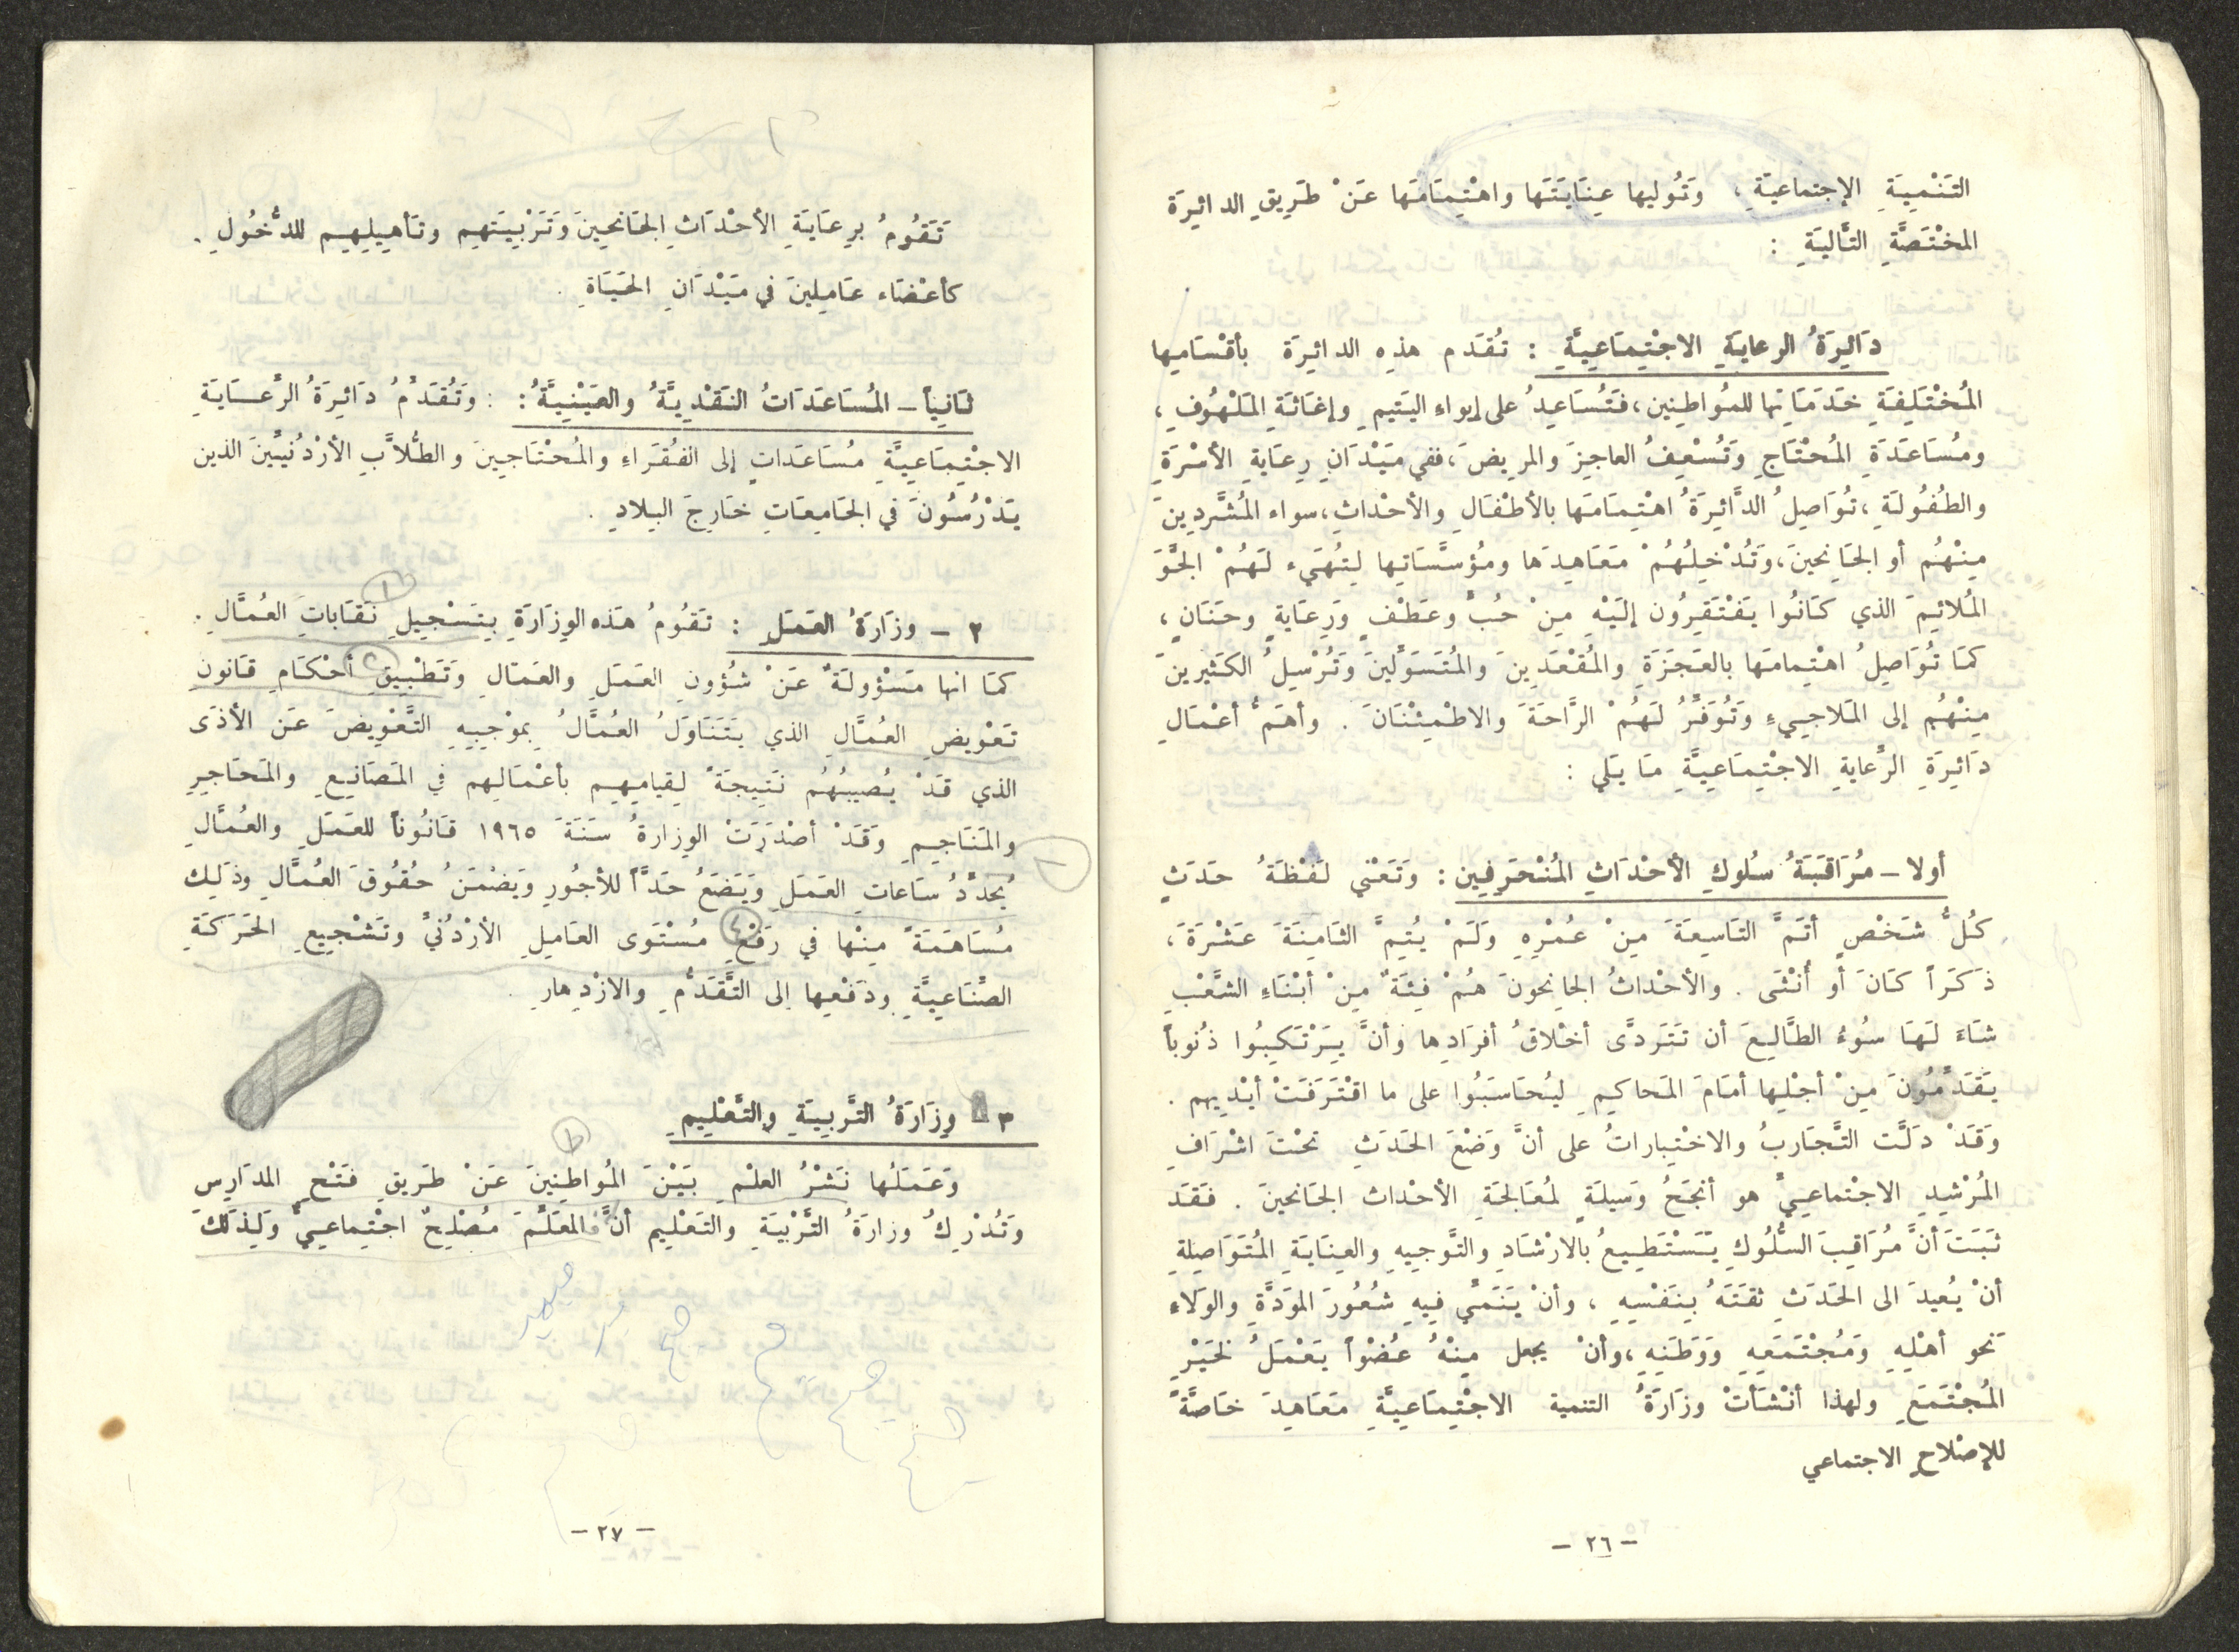 التَنْمِيَةِ الإجتماعيّةِ ، وَتُوليها عِنَايَتَها واهْتِمَامَها عَنْ طَرِيقِ الدائِرَة
المخْتَصَّةِ التَّاليَةِ :
دَائِرَةُ الرعايَةِ الاجْتِمَاعِيَّةِ : تُقَدم هذِه الدائِرَة بأقْسَامِها
المُخْتَلِفَةِ خَدَمَاتِها للمُواطِنِين ، فَتُسَاعِدُ على إيواءِ اليَتيمِ وإغَاثَةِ المَلْهُوفِ ،
ومُسَاعَدَةِ المُحْتَاجِ وَتُسْعِفُ العاجِزَ والمرِيضَ ، ففي مَيْدَانِ رِعَايَةِ الأسْرَةِ
والطُفُولَةِ ، تُوَاصِلُ الدَّائِرَةُ اهْتِمَامَها بالأطْفَالِ والأحْداثِ ، سواء المُشَّردِينَ
مِنْهُم أو الجَانِحينَ ، وَتُدْخِلُهُمْ مَعَاهِدَها ومُؤسَّسَاتِها لِتُهَيء لَهُمْ الجَّوَ
المُلائِمَ الذي كَانُوا يَفْتَقِرُون إلَيْهِ مِنْ حُبٍّ وعَطْفٍ وَرِعَايةٍ وحَنَانٍ ،
كمَا تُوَاصِلُ اهْتِمامَها بالعَجَزَةِ والمُقْعَدِينَ والمُتَسَوِّلينَ وَتُرْسِلُ الكَثيرينَ
مِنْهُم إلى المَلاجيءِ وَتُوَفِّرُ لَهُمْ الرَّاحَةَ والاطْمِئْنَانَ . وأهَمُّ أعْمَالِ
دَائِرَةِ الرِّعايةِ الاجْتِمَاعِيَّةِ مَا يَلي :
أولا - مُرَاقَبَةُ سُلوكِ الأحْدَاثِ المُنْحَرِفِين : وَتَعْني لَفْظَةُ حَدَثٍ
كُلُّ شَخْصٍ أتَمَّ التَاسِعَةَ مِنْ عُمْرِهِ وَلَمْ يُتِمَّ الثَامِنَةَ عَشْرَةَ ،
ذَكَرَاً كَانَ أو أُنْثَى . والأحْداثُ الجانِحونَ هُمْ فِئَةٌ مِنْ أبْنَاءِ الشَّعْبِ
شَاءَ لَهَا سُوءُ الطَّالِعَ أن تَتَردَّى أخْلاقُ أفرَادِها وَأنَّ يَرْتَكِبُوا ذُنُوباً
يَقَدَّمُونَ مِنْ أجْلِها أمَامَ المَحاكِمِ لِيُحَاسَبُوا على ما اقْتَرَفَتْ أيْدِيهم .
وَقَدْ دَلَّت التَّجَارِبُ والاخْتِباراتُ على أنَّ وَضْعَ الحَدَثِ تحْتَ اشْرَافِ
المُرْشِدِ الاجْتماعِيِّ هو أنجَحُ وَسيلَةٍ لمُعَالجَةِ الأحْداث الجَانحينَ . فَقَد
ثَبَتَ أنَّ مُرَاقِبَ السُّلُوكِ يَسْتَطِيعُ بالارْشَادِ والتَّوجِيهِ والعِنَايَةِ المُتَوَاصِلةِ
أنْ يُعيدَ الى الحَدَثِ ثقَتَهُ بِنَفْسِهِ ، وأنْ يَنَمِّي فِيهِ شُعُورَ الموَدَّةِ والوَلاءِ
نَحو أهْلِهِ وَمُجْتَمَعِهِ وَوَطَنِهِ ، وأنْ يجعل مِنْهُ عُضْوَاً يَعْمَلُ لخَيْرِ
المُجْتَمَعِ ولهذا أنْشَأتْ وزَارَةُ التنمية الاجْتِمَاعِيَّةِ مَعَاهِدَ خَاصَّةً
للإصْلاحِ الاجتماعي
- ٢٦ -
تَقُومُ بِرِعَايَةِ الأحْدَاثِ الجَانحِينَ وَتَرْبِيَتِهم وتَأهِيلِهِم للدُّخُولِ .
كأعْضَاء عَامِلِينَ في مَيْدَانِ الحَيَاةِ .
ثَانِيَاً - المُسَاعَدَاتُ النَقْدِيَّةُ والعَيْنِيَّةُ : : وَتُقَدِّمُ دَائِرَةُ الرِّعَايَةِ
الاجْتِمَاعِيَّةِ مُسَاعَدَاتٍ إلى الفُقَراءِ والمُحْتَاجِينَ والطُلاَّبِ الأرْدُنيِّينَ الذين
يَدْرُسُونَ في الجَامِعَاتِ خَارِجَ البِلادِ .
٢ - وزَارَةُ العَمَلِ : تَقُومُ هَذه الوِزَارَةِ بِتَسْجِيلِ نَقَاباتَ العُمَّالِ .
١
كمَا انها مَسْؤولَةٌ عَنْ شُؤونِ العَمَلِ والعَمّالِ وَتَطْبِيقِ أحْكَامِ قَانونِ
٢
تَعْوِيضِ العُمَّالِ الذي يَتَنَاوَلُ العُمَّالُ بِموْجِبِهِ التَّعْوِيضَ عَن الأذَى
الذي قَدْ يُصيبُهُمُ نَتِيجَةً لِقيامِهِم بأعْمَالِهم في المَصَانِعِ والمَحَاجِرِ
والمَنَاجِمِ وَقَدْ أصْدَرَتْ الوِزارةُ سَنَةَ ١٩٦٥ قَانُوناً للعَمَلِ والعُمَّالِ
يُحدِّدُ سَاعاتِ العَمَلِ وَيَضَعُ حَدَّاً للأجُورِ وَيَضْمَنُ حُقُوقَ العُمَّالِ وذَلِك
مُسَاهَمَةً مِنْها في رَفْعِ مُسْتَوى العَامِلِ الأرْدُنيِّ وتَشْجِيعِ الحَرَكَةِ
٤
الصِّنَاعِيَّةِ وَدَفْعِها الى التَّقَدُّمِ والازْدِهارِ .
٣ - وِزَارَةُ التَّرْبِيَةِ والتَّعْلِيمِ
وَعَمَلُها نَشْرُ العِلْمِ بَيْنَ المُواطِنِينَ عَنْ طَريقِ فَتْحِ المدَارِس
وَتُدْرِكُ وزارَةُ التَّرْبِيَةِ والتَعْلِيم أنَّ المعَلِّمَ مُصْلِحٌ اجْتِماعِيٌّ وَلِذَلَكَ
- ٢٧ -